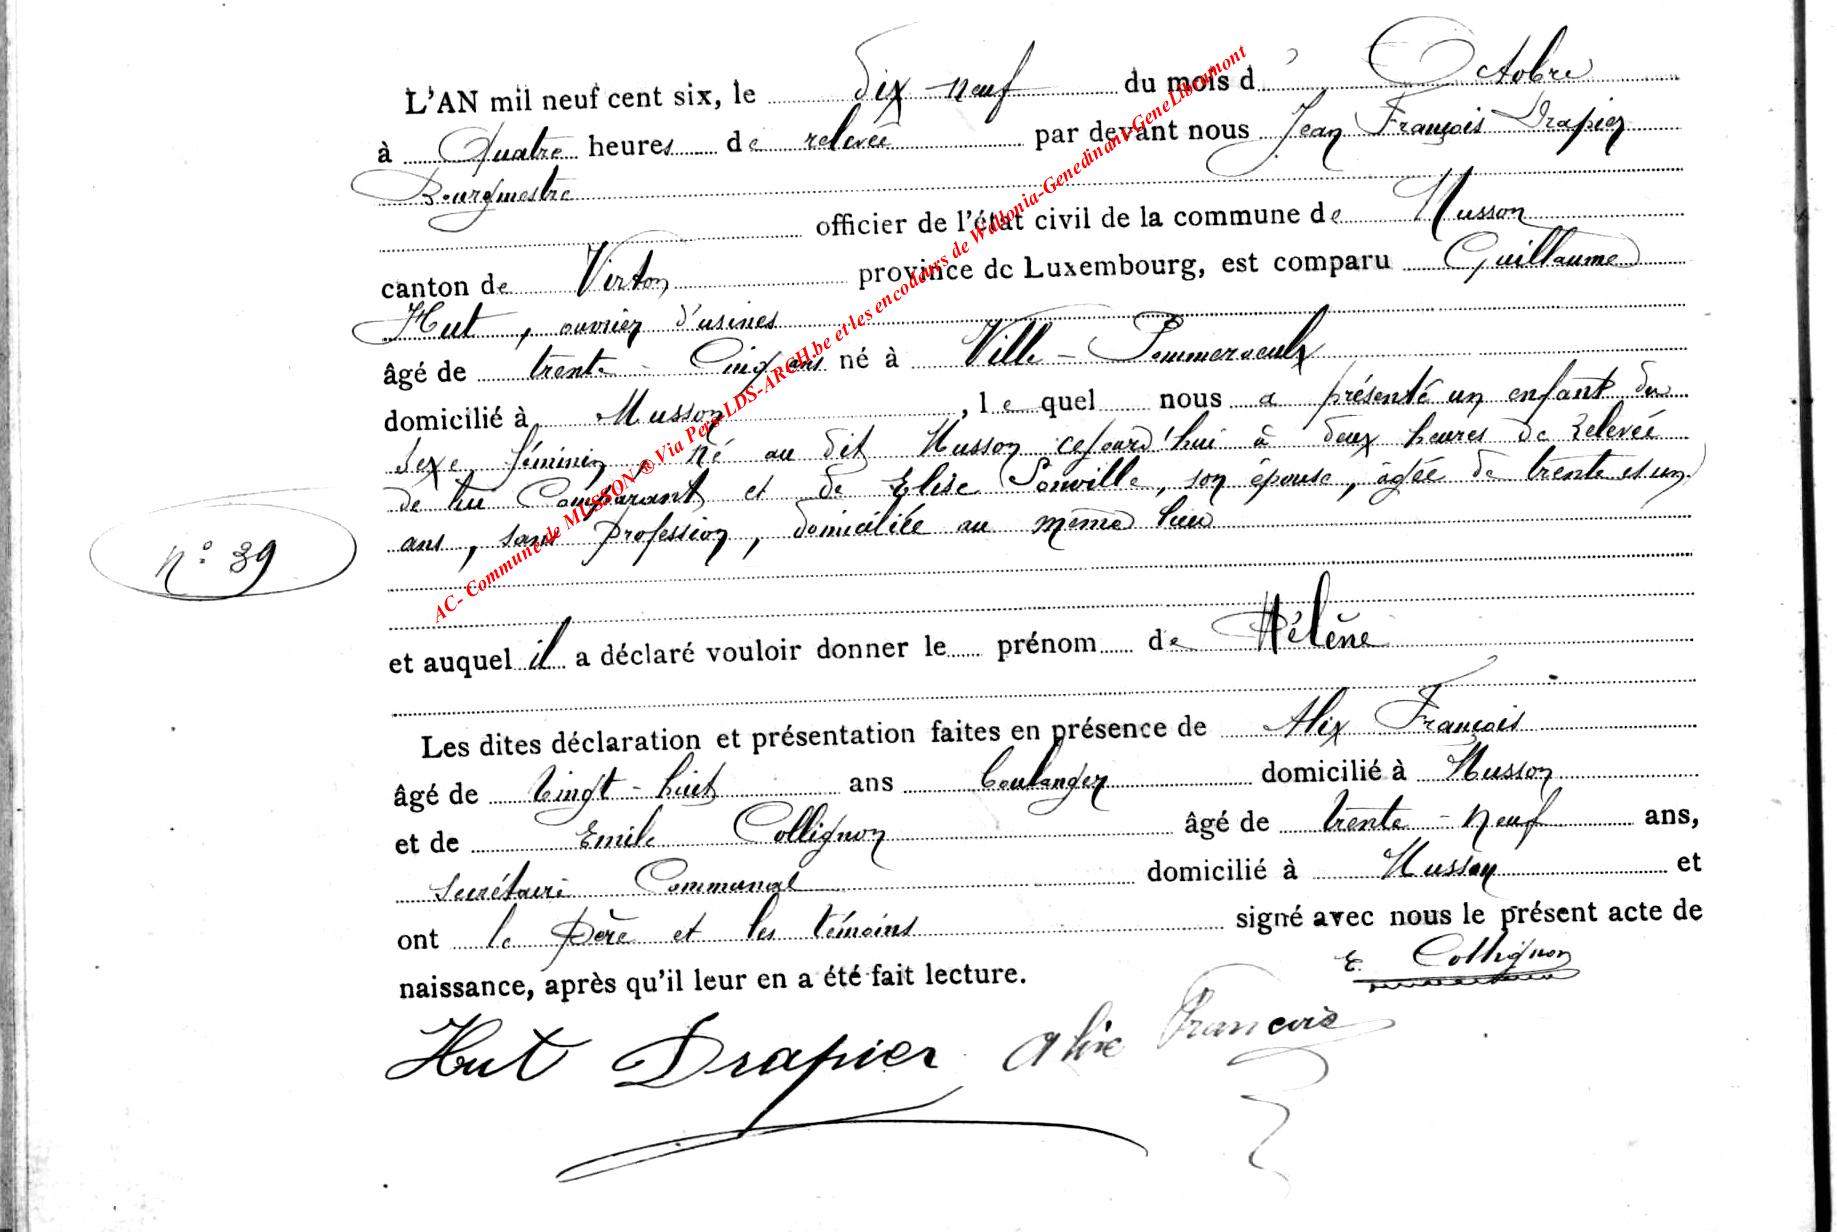 L'AN mil neuf cent six, le dix-neuf du mois d' Octobre
à Quatre heures de relevée par devant nous Jean François Drapier
Bourgmestre
officier de l'état civil de la commune de Musson
canton de Virton province de Luxembourg, est comparu Guillaume
Hut, ouvrier d'usines
âgé de trente-Cinq ans né à Ville-Pommeraeulx
domicilié à Musson, le quel nous a présenté un enfant du
sexe féminin, né au dit Musson cejourd'hui à deux heures de relevée
de lui Comparant et de Elise, son épouse, âgée de trente et un
ans, sans profession, domiciliée au même lieu
n° 39
et auquel il a déclaré vouloir donner le prénom de Hélène
Les dites déclaration et présentation faites en présence de Alix François
âgé de vingt-huit ans boulanger domicilié à Musson
et de Emile Collignon âgé de trente-neuf ans,
secrétaire Communal domicilié à Musson et
ont le père et les témoins signé avec nous le présent acte de
naissance, après qu'il leur en a été fait lecture.
E. Collignon
Hut Drapier Alix François
AC- Commune de MUSSON ® Via Pers LDS-ARCH.be et les encodeurs de Wallonia-Genedinant-GeneLibramont